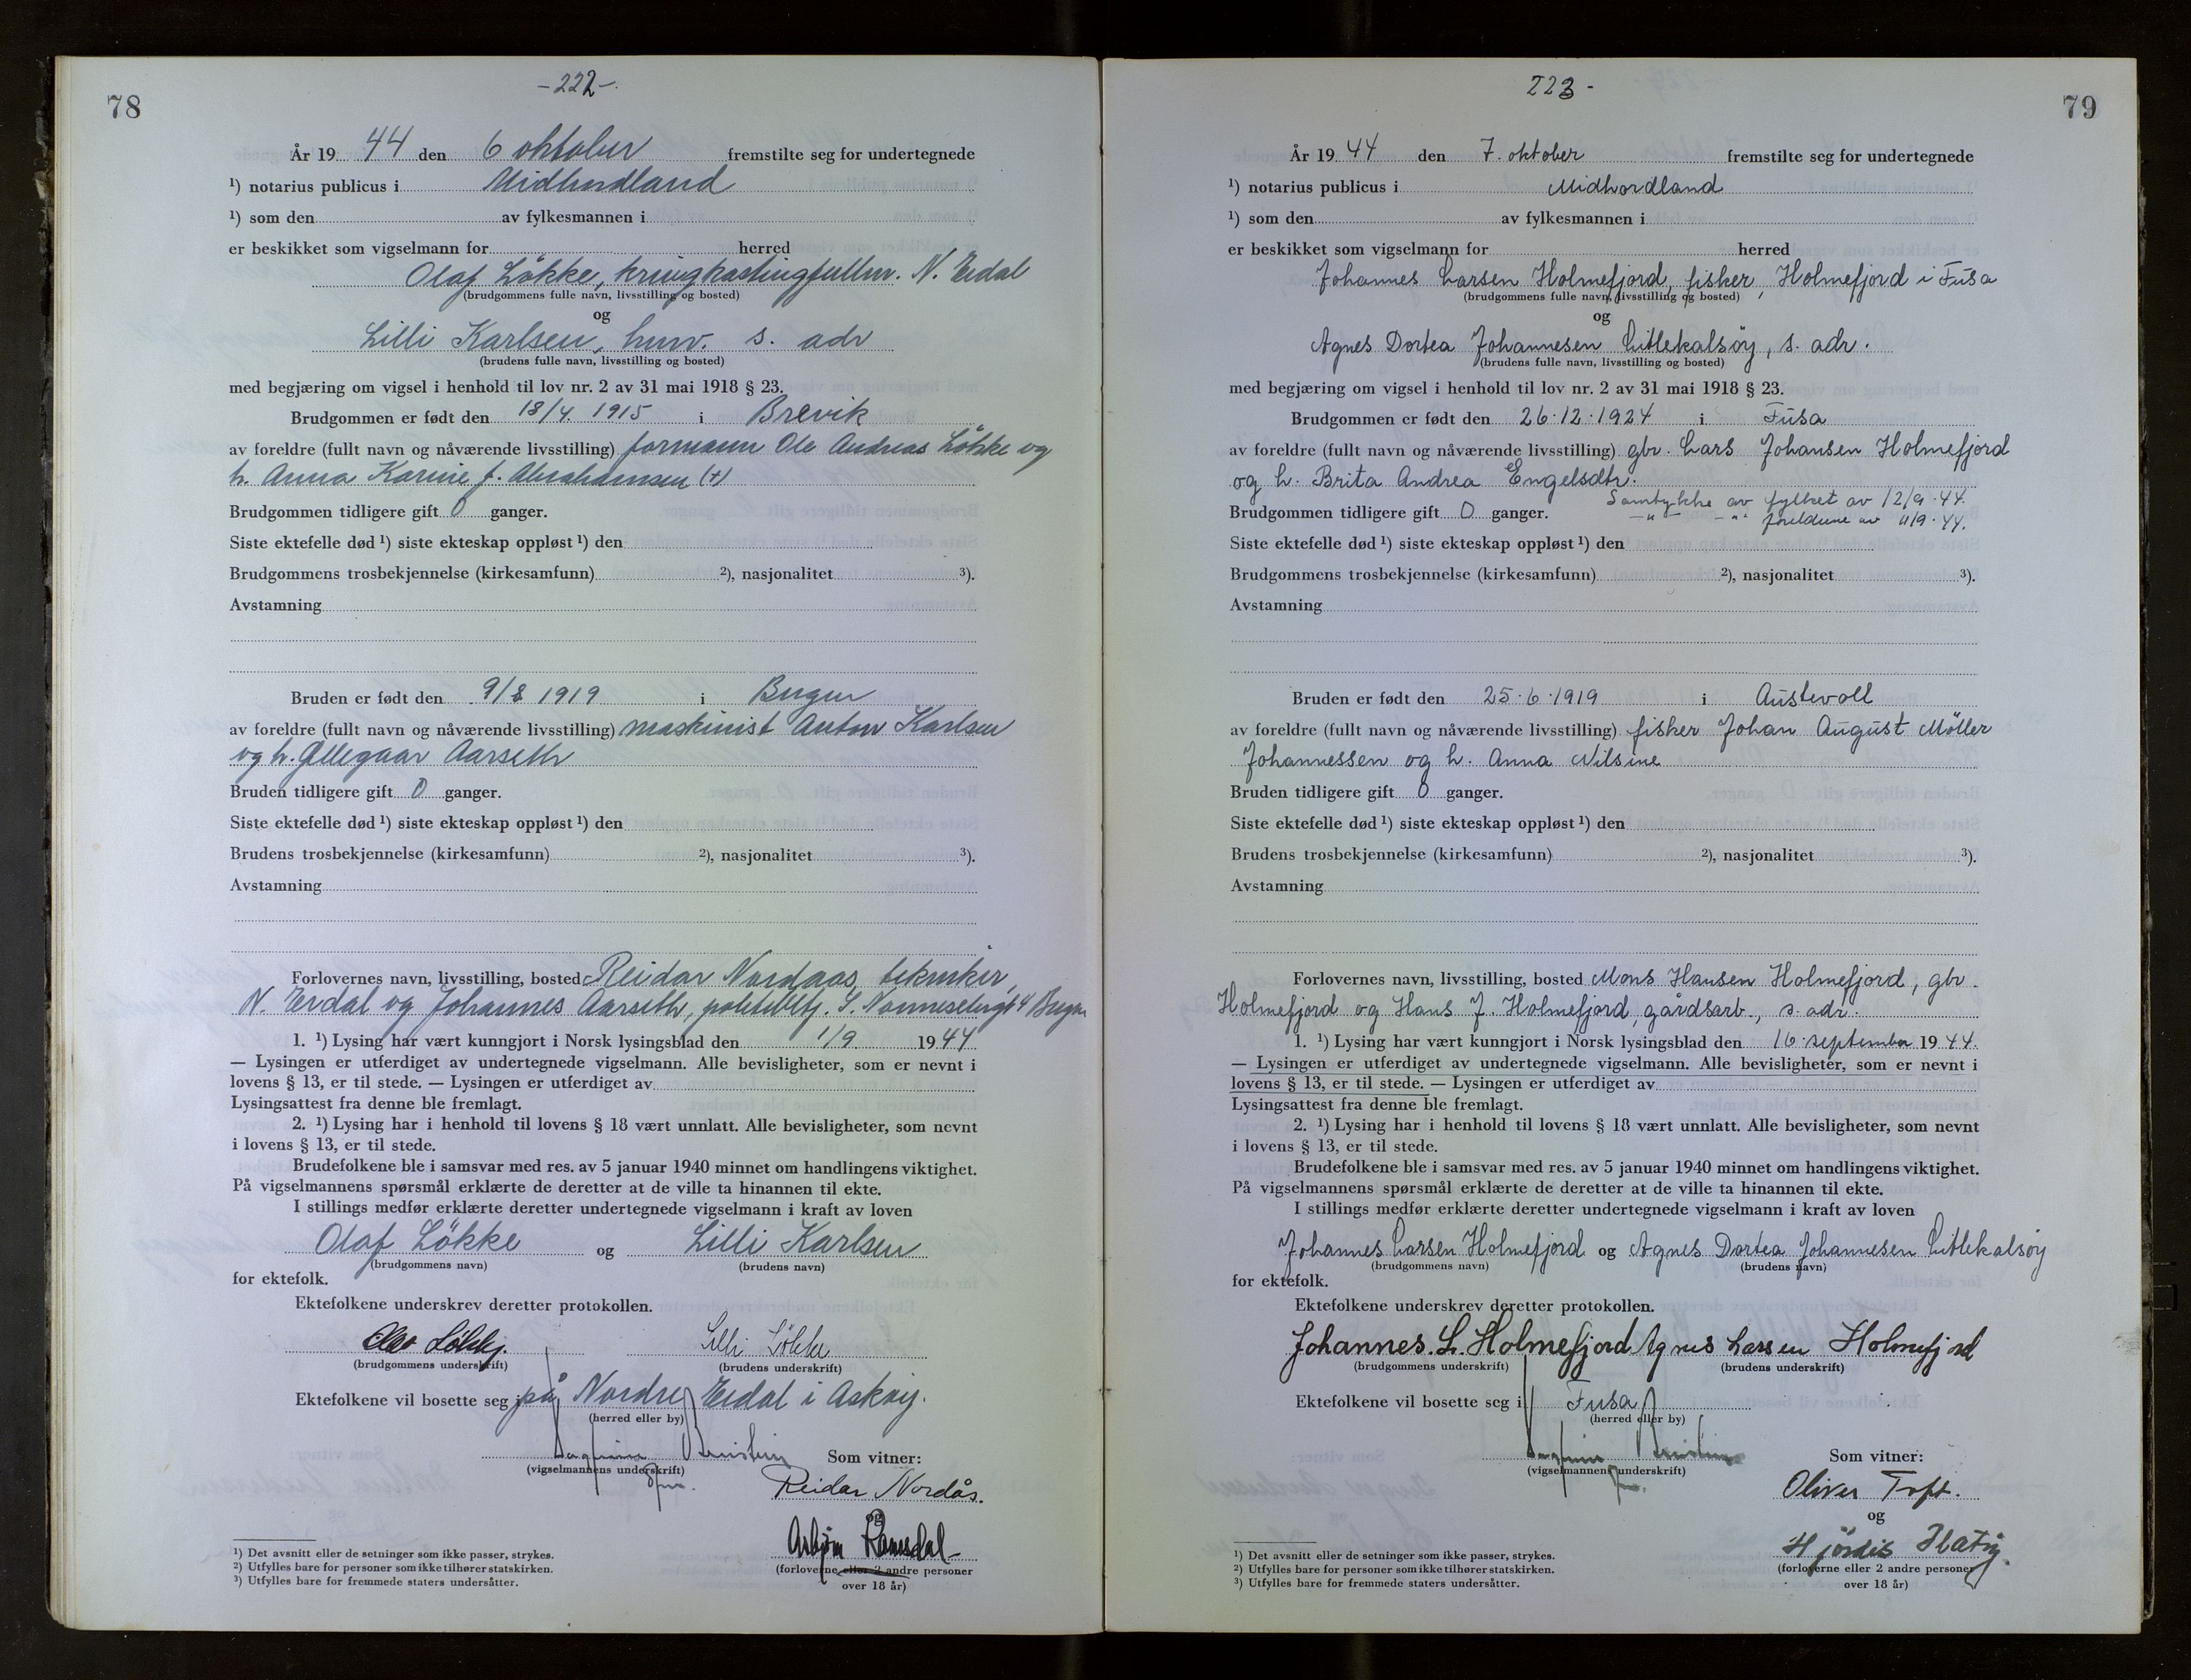 78
-222-
År 19 44 den 6 oktober fremstilte seg for undertegnede
¹) notarius publicus i Midhordland
¹) som den av fylkesmannen i
er beskikket som vigselmann for herred
Olaf Løkke, kringkastingfullm. N. Erdal
(brudgommens fulle navn, livsstilling og bosted)
og
Lilli Karlsen, husv. s. adr
(brudens fulle navn, livsstilling og bosted)
med begjæring om vigsel i henhold til lov nr. 2 av 31 mai 1918 § 23.
Brudgommen er født den 18/4. 1915 i Brevik
av foreldre (fullt navn og nåværende livsstilling) formann Ole Andreas Løkke og
h. Anna Karine f. Abrahamsen (+)
Brudgommen tidligere gift 0 ganger.
Siste ektefelle død ¹) siste ekteskap oppløst ¹) den
Brudgommens trosbekjennelse (kirkesamfunn) ²), nasjonalitet ³).
Avstamning
Bruden er født den 9/8 1919 i Bergen
av foreldre (fullt navn og nåværende livsstilling) maskinist Anton Karlsen
og h. Ollegaar Aarseth
Bruden tidligere gift 0 ganger.
Siste ektefelle død ¹) siste ekteskap oppløst ¹) den
Brudens trosbekjennelse (kirkesamfunn) ²), nasjonalitet ³).
Avstamning
Forlovernes navn, livsstilling, bosted Reidar Nordaas, tekniker,
N. Erdal og Johannes Aarseth, politibetj. 4 Bergen
1. ¹) Lysing har vært kunngjort i Norsk lysingsblad den 1/9. 19 44
— Lysingen er utferdiget av undertegnede vigselmann. Alle bevisligheter, som er nevnt i
lovens § 13, er til stede. — Lysingen er utferdiget av
Lysingsattest fra denne ble fremlagt.
2. ¹) Lysing har i henhold til lovens § 18 vært unnlatt. Alle bevisligheter, som nevnt
i lovens § 13, er til stede.
Brudefolkene ble i samsvar med res. av 5 januar 1940 minnet om handlingens viktighet.
På vigselmannens spørsmål erklærte de deretter at de ville ta hinannen til ekte.
I stillings medfør erklærte deretter undertegnede vigselmann i kraft av loven
Olaf Løkke og Lilli Karlsen
(brudgommens navn) (brudens navn)
for ektefolk.
Ektefolkene underskrev deretter protokollen.
Løkke Lilli Løkke
(brudgommens underskrift) (brudens underskrift)
Ektefolkene vil bosette seg i på Nordre Erdal i Askøy.
(herred eller by)
Som vitner:
(vigselmannens underskrift)
Reidar Nordås.
og
Asbjørn Ramsdal
(forloverne eller 2 andre personer
over 18 år)
¹) Det avsnitt eller de setninger som ikke passer, strykes.
²) Utfylles bare for personer som ikke tilhører statskirken.
³) Utfylles bare for fremmede staters undersåtter.
79
223-
År 19 44 den 7. oktober fremstilte seg for undertegnede
¹) notarius publicus i Midhordland
¹) som den av fylkesmannen i
er beskikket som vigselmann for herred
Johannes Larsen Holmefjord, fisker, Holmefjord i Fusa
(brudgommens fulle navn, livsstilling og bosted)
og
Agnes Dortea Johannesen Litlekalsøy, s. adr.
(brudens fulle navn, livsstilling og bosted)
med begjæring om vigsel i henhold til lov nr. 2 av 31 mai 1918 § 23.
Brudgommen er født den 26.12.1924 i Fusa
av foreldre (fullt navn og nåværende livsstilling) gbr. Lars Johansen Holmefjord
og h. Brita Andrea Engelsdtr.
Samtykke av fylket av 12/9.44.
Brudgommen tidligere gift 0 ganger. —"— —"— foreldrene av 11/9.44.
Siste ektefelle død ¹) siste ekteskap oppløst ¹) den
Brudgommens trosbekjennelse (kirkesamfunn) ²), nasjonalitet ³).
Avstamning
Bruden er født den 25.6.1919 i Austevoll
av foreldre (fullt navn og nåværende livsstilling) fisker Johan August Møller
Johannessen og h. Anna Nilsine
Bruden tidligere gift 0 ganger.
Siste ektefelle død ¹) siste ekteskap oppløst ¹) den
Brudens trosbekjennelse (kirkesamfunn) ²), nasjonalitet ³).
Avstamning
Forlovernes navn, livsstilling, bosted Mons Hansen Holmefjord, gbr.
Holmefjord og Hans J. Holmefjord, gårdsarb., s. adr.
1. ¹) Lysing har vært kunngjort i Norsk lysingsblad den 16. september 19 44.
— Lysingen er utferdiget av undertegnede vigselmann. Alle bevisligheter, som er nevnt i
lovens § 13, er til stede. — Lysingen er utferdiget av
Lysingsattest fra denne ble fremlagt.
2. ¹) Lysing har i henhold til lovens § 18 vært unnlatt. Alle bevisligheter, som nevnt
i lovens § 13, er til stede.
Brudefolkene ble i samsvar med res. av 5 januar 1940 minnet om handlingens viktighet.
På vigselmannens spørsmål erklærte de deretter at de ville ta hinannen til ekte.
I stillings medfør erklærte deretter undertegnede vigselmann i kraft av loven
Johannes Larsen Holmefjord og Agnes Dortea Johannesen Litlekalsøy
(brudgommens navn) (brudens navn)
for ektefolk.
Ektefolkene underskrev deretter protokollen.
Johannes. L. Holmefjord Agnes Larsen Holmefjord
(brudgommens underskrift) (brudens underskrift)
Ektefolkene vil bosette seg i Fusa
(herred eller by)
Som vitner:
(vigselmannens underskrift)
Oliver Toft.
og
Hjördis
(forloverne eller 2 andre personer
over 18 år)
¹) Det avsnitt eller de setninger som ikke passer, strykes.
²) Utfylles bare for personer som ikke tilhører statskirken.
³) Utfylles bare for fremmede staters undersåtter.